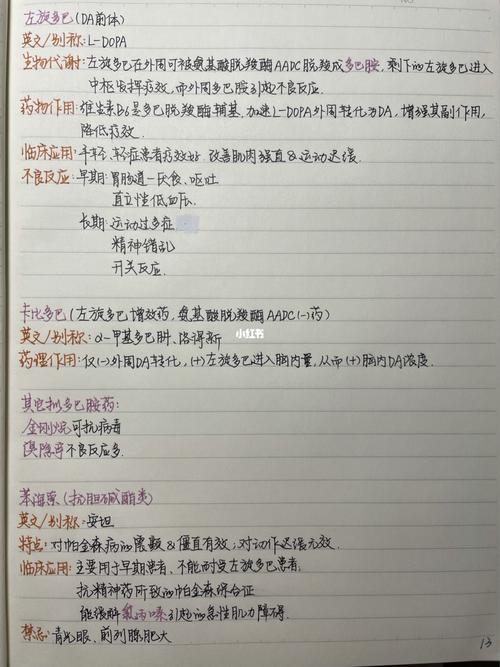 左旋多巴(DA前体)
英文/别称:L-DOPA
生物代谢:左旋多巴在外周可被氨基酸脱羧酶AADC脱羧成多巴胺,剩下的左旋多巴进入
中枢发挥疗效.而外周多巴胺引起不良反应.
药物作用:维生素B6是多巴脱羧酶辅基.加速L-DOPA外周转化为DA,增强其副作用,
降低疗效.
临床应用:年轻、轻症患者疗效好.改善肌肉强直&运动迟缓.
不良反应:早期:胃肠道—厌食、呕吐
直立性低血压.
长期:运动过多症
精神错乱
开关反应.
卡比多巴(左旋多巴增效药,氨基酸脱羧酶AADC(-)药)
英文/别称:α-甲基多巴肼、洛得新
药理作用:仅(-)外周DA转化,(+)左旋多巴进入脑内量,从而(+)脑内DA浓度.
小红书
其它拟多巴胺药:
金刚烷可抗病毒
溴隐亭不良反应多.
苯海索(抗胆碱酯类)
英文/别称:安坦
特点:对帕金森病的震颤&僵直有效;对动作迟缓无效.
临床应用:主要用于早期患者、不能耐受左旋多巴患者.
抗精神药所致的帕金森综合证
能缓解氯丙嗪引起的急性肌力障碍.
禁忌:青光眼、前列腺肥大
13